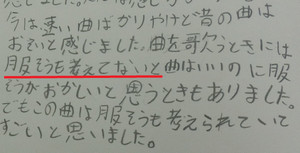 今は速い曲ばかりやけど昔の曲は
おそいと感じました。曲を歌うときには
服そうも考えてないと曲はいいのに服
そうがおかしいと思うときもありました。
でもこの曲は服そうも考えられていて
すごいと思いました。